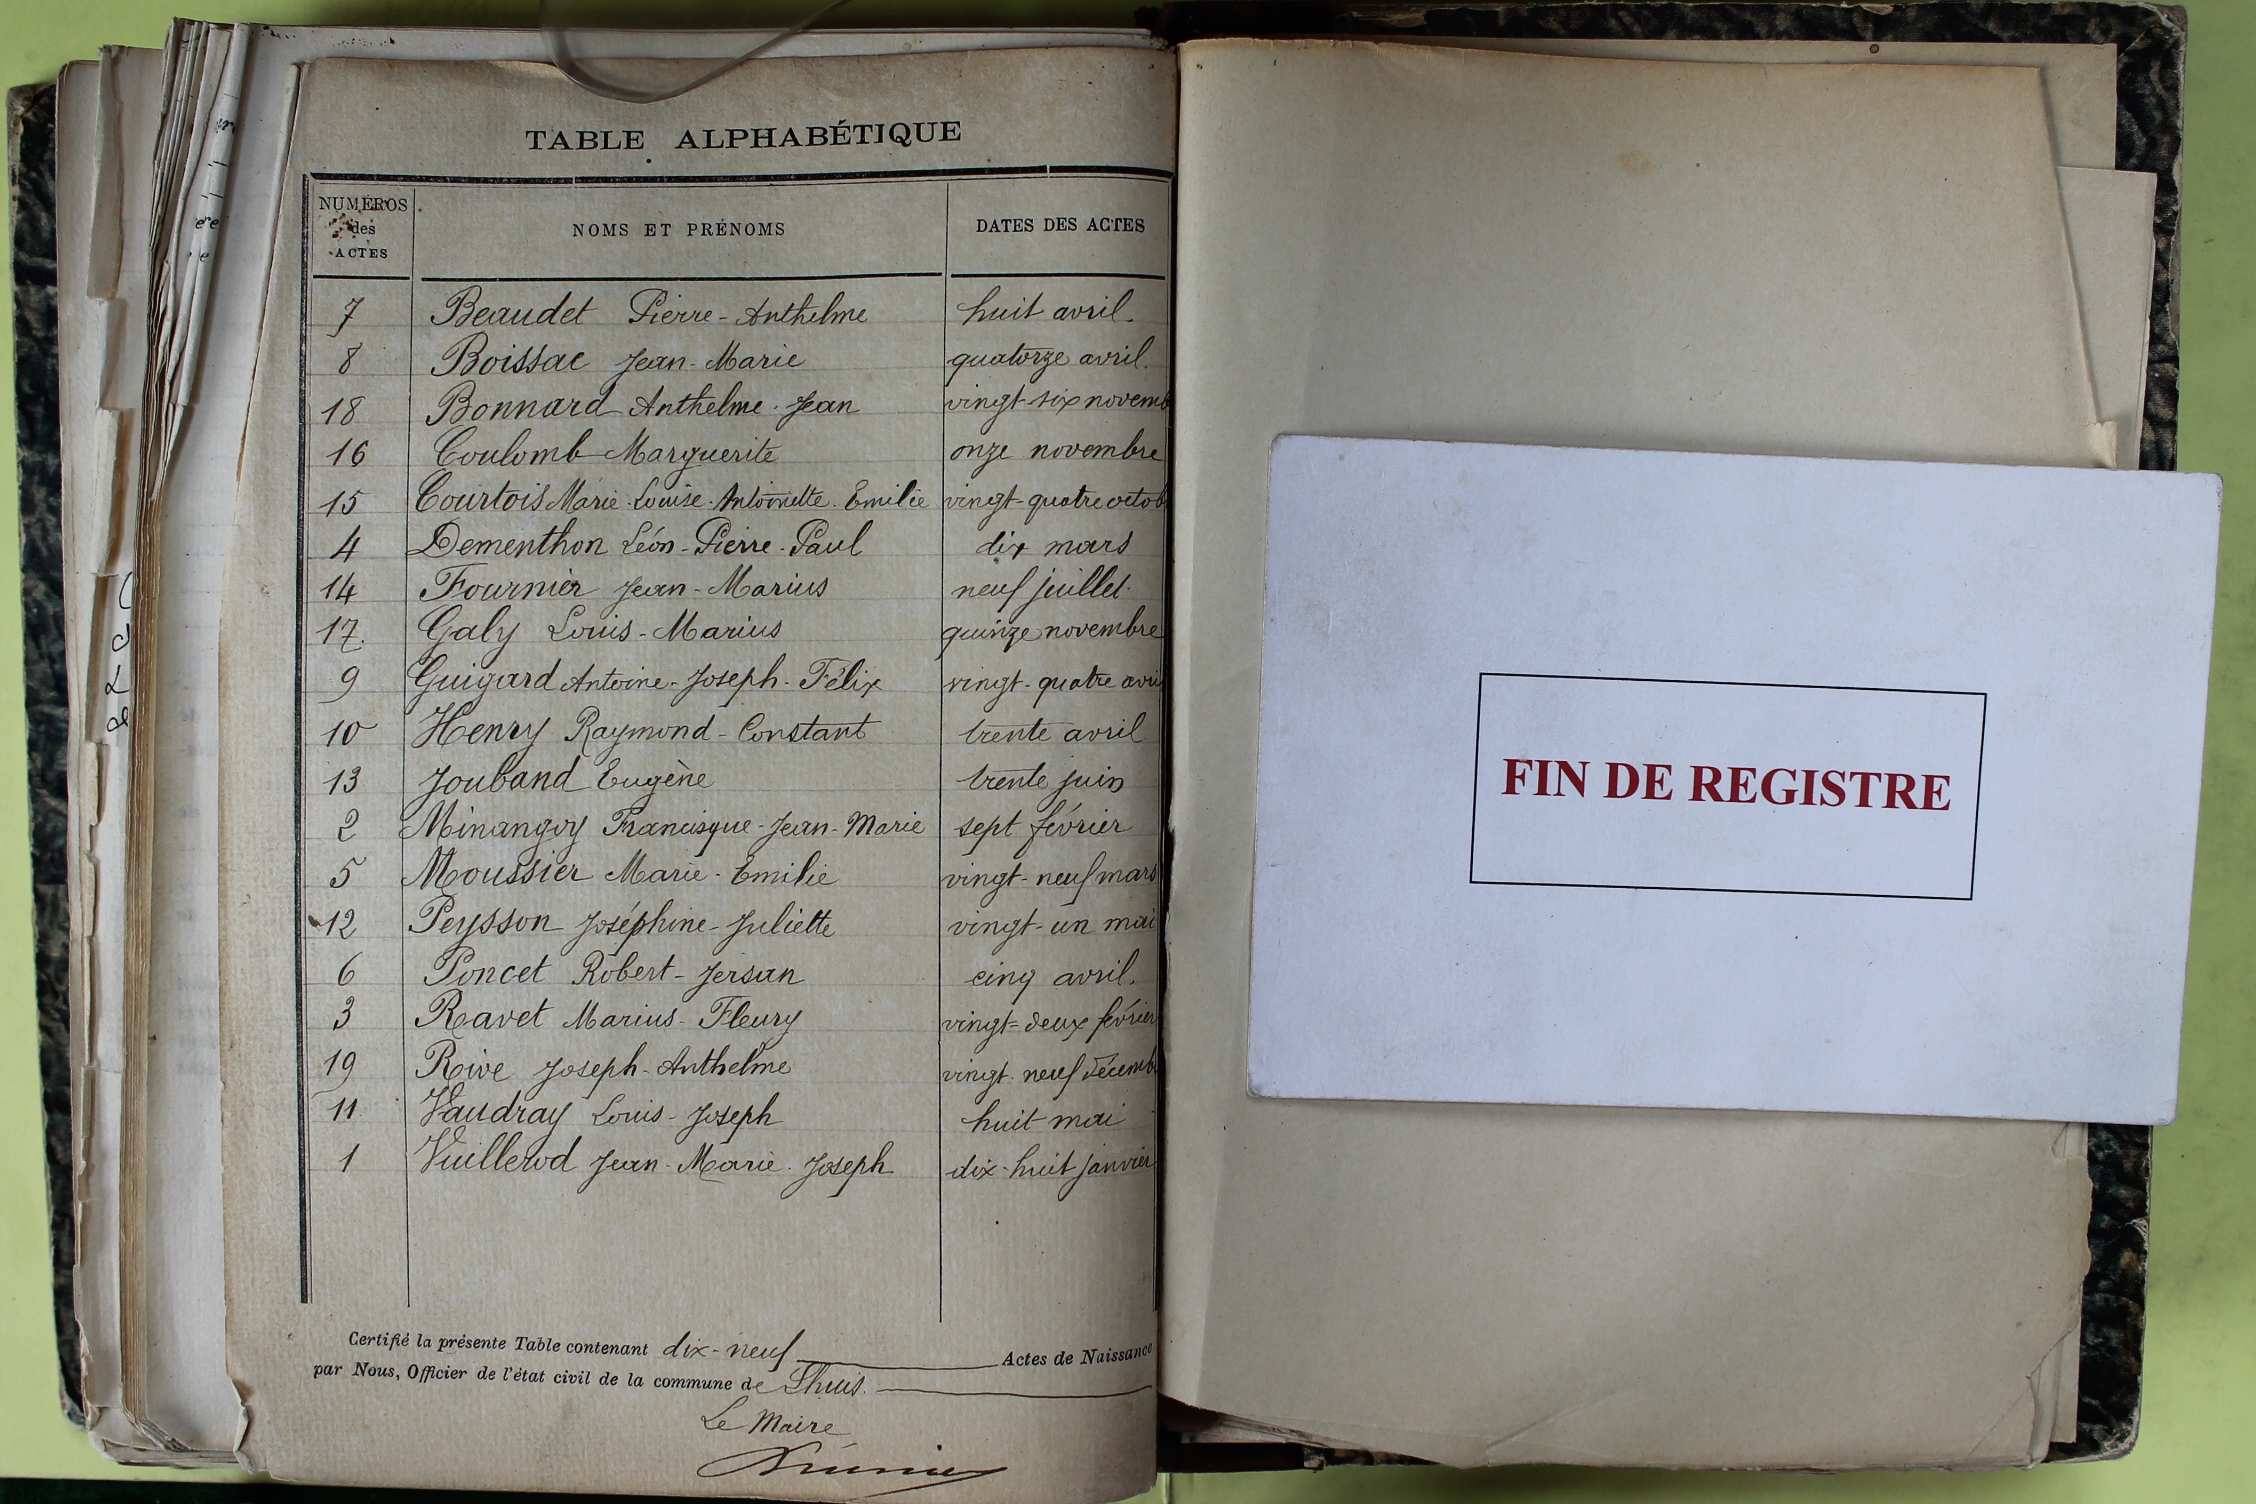 TABLE ALPHABÉTIQUE
NUMÉROS des ACTES NOMS ET PRÉNOMS DATES DES ACTES
7 Beaudet Pierre-Anthelme huit avril.
8 Boissac Jean-Marie quatorze avril.
18 Bonnard Anthelme-Jean vingt-six novemb
16 Coulomb Marguerite onze novembre
15 Courtois Marie-Louise-Antoinette-Emilie vingt-quatre octob
4 Dementhon Léon-Pierre-Paul dix mars
14 Fournier Jean-Marius neuf juillet.
17. Galy Louis-Marius quinze novembre
9 Guigard Antoine-Joseph-Félix vingt-quatre avri
10 Henry Raymond-Constant trente avril
13 Jouband Eugène trente juin
2 Minangoy Francisque-Jean-Marie sept février
5 Moussier Marie-Emilie vingt-neuf mars
12 Peysson Joséphine-Juliette vingt-un mai
6 Poncet Robert-Jersan cinq avril.
3 Ravet Marius-Fleury vingt-deux février
19 Rive Joseph-Anthelme vingt-neuf décemb
11 Vaudray Louis-Joseph huit mai
1 Vuillerod Jean-Marie-Joseph dix-huit janvier
Certifié la présente Table contenant dix-neuf Actes de Naissance
par Nous, Officier de l'état civil de la commune de
Le Maire
FIN DE REGISTRE